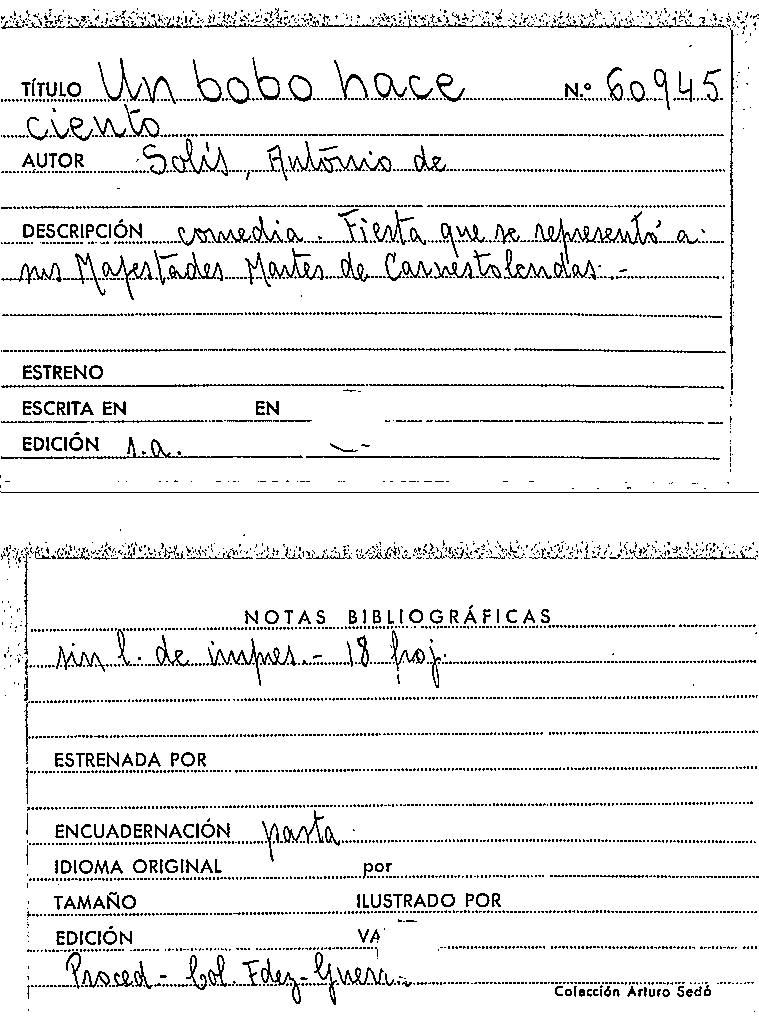 TÍTULO Un bobo hace N.º 60945
ciento
AUTOR Solís, António de
DESCRIPCIÓN comedia. Fiesta que se representó a
sus Majestades Martes de Carnestolendas.-
ESTRENO
ESCRITA EN EN
EDICIÓN s.a.
NOTAS BIBLIOGRÁFICAS
sin l. de impres.- 18 hoj.
ESTRENADA POR
ENCUADERNACIÓN pasta
IDIOMA ORIGINAL por
TAMAÑO ILUSTRADO POR
EDICIÓN VA
Proced - Col. Fdez-Guerr.-
Colección Arturo Sedó